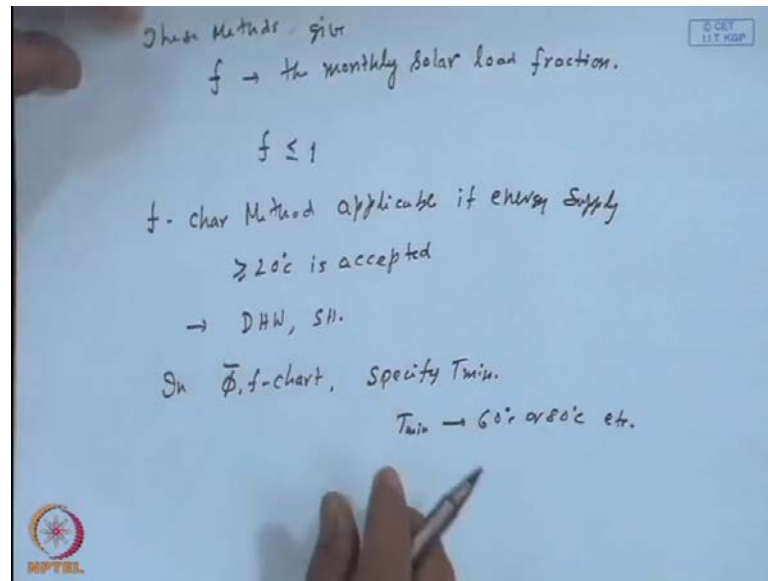 These Methods give
f → the monthly solar load fraction.
© CET
I.I.T. KGP
f ≤ 1
f-char Method applicable if energy supply
≥ 20°c is accepted
→ DHW, SH.
In Φ̄, f-chart, specify Tmin.
Tmin → 60°c or 80°c etc.
NPTEL